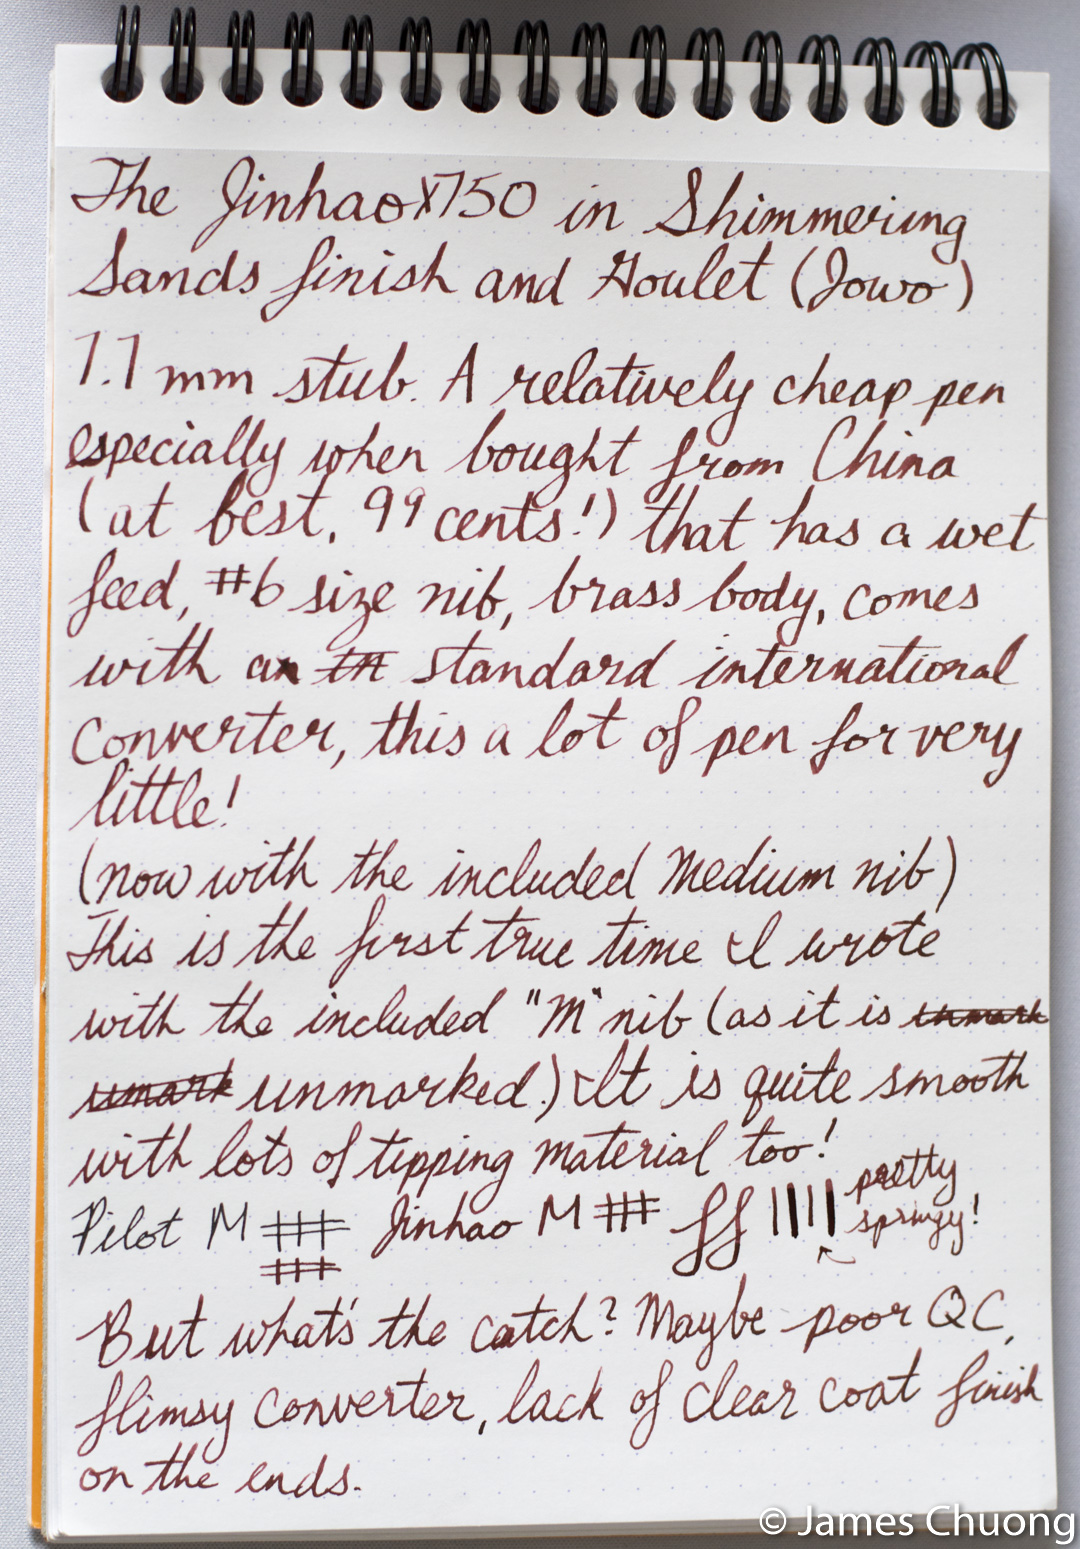 The Jinhao X750 in Shimmering
Sands finish and Goulet (Jowo)
1.1 mm stub. A relatively cheap pen
especially when bought from China
(at best, 99 cents!) that has a wet
feed, #6 size nib, brass body, comes
with a in standard international
converter, this a lot of pen for very
little!
(now with the included Medium nib)
This is the first true time I wrote
with the included "M" nib (as it is unmark
unmark unmarked.) It is quite smooth
with lots of tipping material too!
Pilot M Jinhao M ff pretty
springy!
But what's the catch? Maybe poor QC,
flimsy converter, lack of clear coat finish
on the ends.
© James Chuong